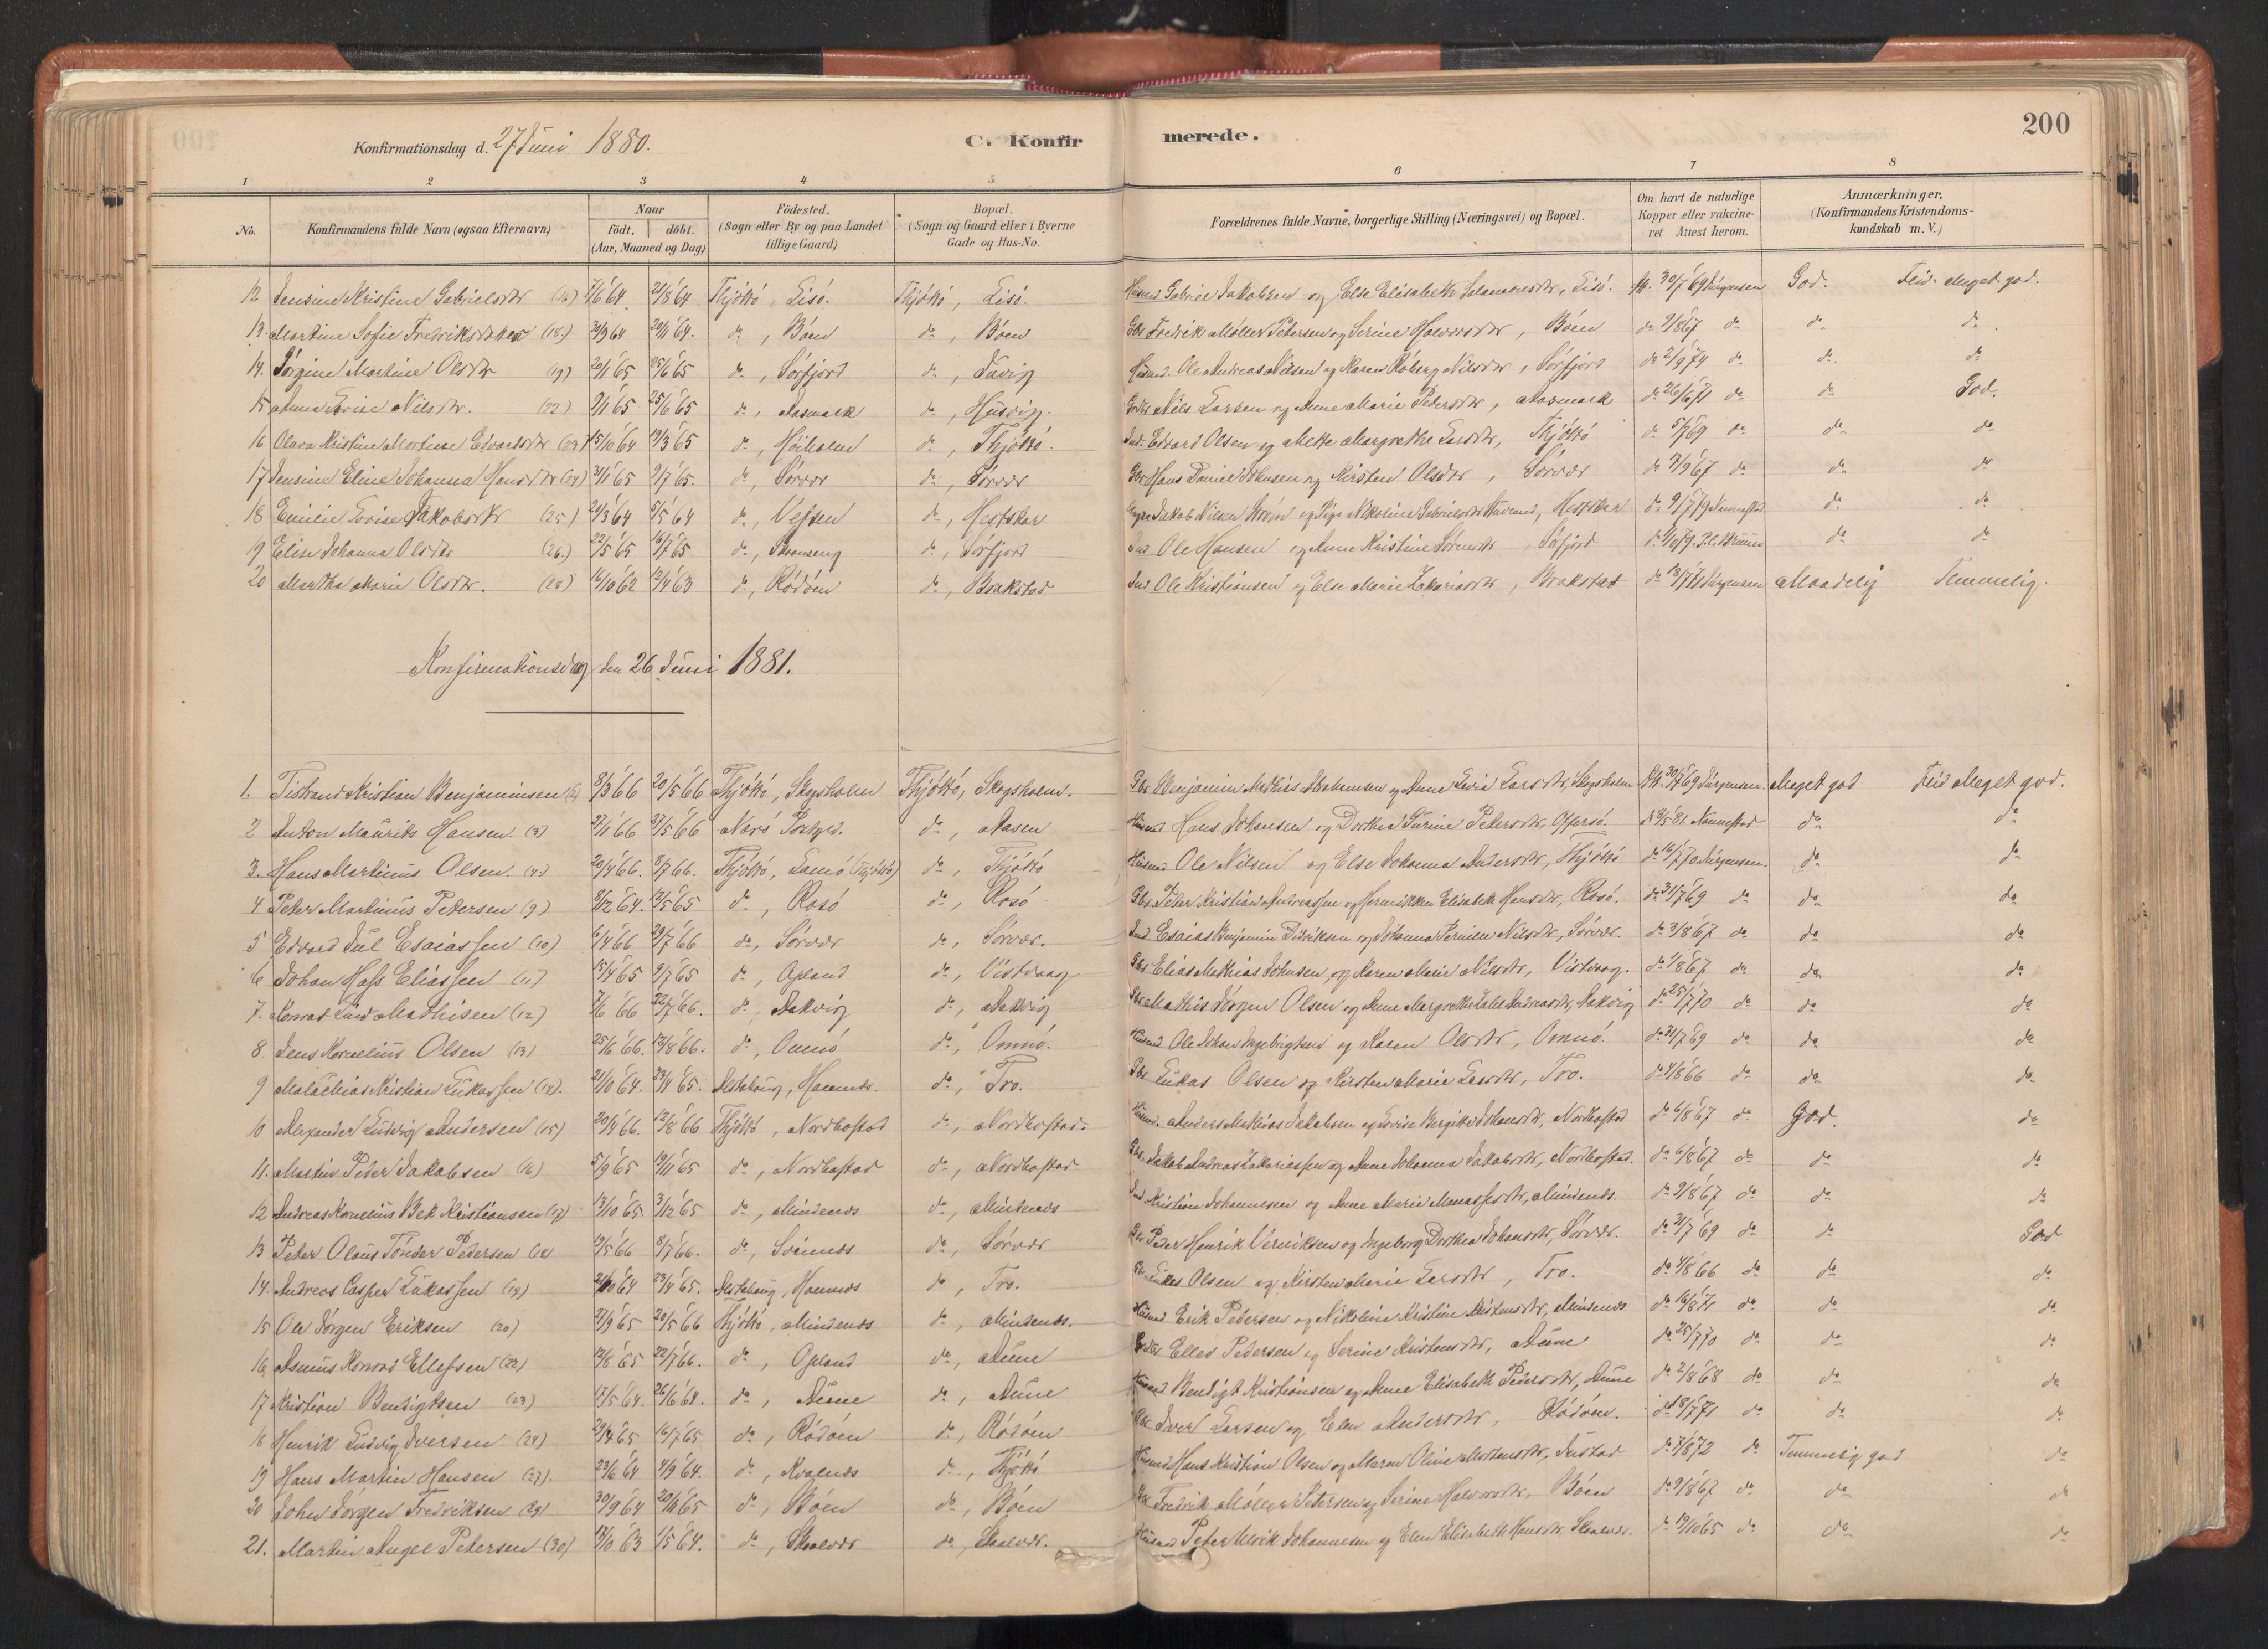 200
Konfirmationsdag d. 27 Juni 1880. C. Konfir merede.
1 2 3 4 5 6 7 8
No. Konfirmandens fulde Navn (ogsaa Efternavn) Naar født. døbt. (Aar, Maaned og Dag) Fødested. (Sogn eller By og paa Landet tillige Gaard) Bopæl. (Sogn og Gaard eller i Byerne Gade og Hus-No. Forældrenes fulde Navne, borgerlige Stilling (Næringsvei) og Bopæl. Om havt de naturlige Kopper eller vakcineret Attest herom. Anmærkninger, (Konfirmandens Kristendomskundskab m. V.)
12 Jensine Kristine Gabrielsdtr (16) 7/6 64 21/8 64 Thjøttø, Lisø. Thjøttø, Lisø. Husmd Gabriel Jakobsen og Else Elisabeth Salamonsdtr, Lisø. 30/7 69 Jürgensen God. Flid. Meget god.
13. Martine Sofie Fredriksdatter (18) 30/9 64 20/11 64. do, Bøen do, Bøen Gbr Fredrik Møller Petersen og Serine Halvorsdtr, Bøen do 9/8 67 do do do
14. Jørgine Martine Olsdtr (19) 20/1 65 25/6 65 do, Sørfjord do, Husmd. Ole Andreas Nilsen og Karen Nilsdtr, Sørfjord do 2/9 74 do do do
15 Anna Lovise Nilsdtr. (22) 9/1 65 25/6 65 do, Aasmark do, Husvig. Nils Larsen og Anne Marie Pedersdtr, Aasmark do 26/6 71 do do God.
16 Olava Kristine Martine Edvardsdtr (23) 15/10 64 19/3 65 do, Høiholm do, Thjøttø. Ind. Edvard Olsen og Mette Margrethe Larsdtr, Thjøttø do 5/7 69 do do do
17 Jensine Eline Johanna Hansdtr (24) 31/1 65 9/7 65. do, Sørvær do, Sørvær Gbr Hans Daniel Johnsen og Kirsten Olsdtr, Sørvær do 7/9 67 do do do
18 Emilie Lovise Jakobsdtr (25) 20/3 64 5/5 64 do, Vefsen do, Hestskar Jakob Nilsen Strøm og Pige Nikoline Gabrielsdtr, Hestskar do 9/7 79 Nannestad do do
19 Elise Johanna Olsdtr (26.) 22/5 65 16/7 65 do, do, Sørfjord Ind Ole Hansen og Anne Kristine Sørensdtr Sørfjord do do
20 Martha Marie Olsdtr. (28) 16/10 62 12/4 63 do, Rødøen do, Brakstad Ind Ole Kristiansen og Else Marie Zakariasdtr, Brakstad do 18/7 71 Jürgensen Maadelig Temmelig.
Konfirmationsdag den 26 Juni 1881.
1. Tistrand Kristian Benjaminsen 8/3 66 20/5 66 Thjøttø, Skogsholm Thjøttø, Skogsholm. Gbr Benjamin Mathias Abrahamsen og Anne Larsdtr, Skogsholm 30/7 69 Jürgensen. Meget god Flid Meget god.
2 Anton Maurits Hansen. (3) 27/1 66 27/5 66 Nærø Prestgd. do, Aasen Husmd Hans Johansen og Dorthea Petersdtr, Offersø. Nannestad do do
3. Hans Martinus Olsen. (4) 20/4 66. 8/7 66. Thjøttø, Lamø (Thjøttø) do, Thjøttø Husmd Ole Nilsen og Else Johanna Andersdtr, Thjøttø do 16/7 70 Jürgensen. do do
4 Peter Martinus Petersen (9) 8/12 64. 13/5 65 do, Rosø do, Rosø Gbr. Peter Kristian Andreassen og Henrikken Elisabeth Hansdtr, Rosø. do 31/7 69 do do do
5 Edvard Jul Esaiassen (10) 6/4 66 29/7 66 do, Sørvær do, Sørvær. Ind Esaias Benjamin Didriksen og Johanna Pernille Nilsdtr, Sørvær. do 3/8 67 do do do
6 Johan Hass Eliassen (11) 15/4 65 9/7 65 do, Opland do, Vistvaag Gbr Elias Mathias Johnsen, og Karen Marie Nilsdtr, Vistvaag. do 1/8 67 do do do
7. Konrad Lind Mathisen (12) 7/6 66 22/7 66. do, Aakvig do, Aakvig Gbr Mathis Jørgen Olsen og Anne Margrethe Andreasdtr, Aakvig do 25/7 70 do do do
8 Jens Kornelius Olsen (13) 25/6 66. 12/8 66. do, Omnø do, Omnø. Husmd Ole Johan Ingebrigtsen og Karen Olsdtr, Omnø. do 31/7 69 do do do
9 Malachias Kristian Lukassen (14). 21/10 64. 23/4 65. Alstahaug, Hamnes. do, Tro. Gbr Lukas Olsen og Kirsten Marie Larsdtr, Tro. do 4/8 66 do do do
10 Alexander Ludvig Andersen (15) 20/4 66. 12/8 66 Thjøttø, Nordbostad do, Nordbostad. Husmd. Anders Mathias Jakobsen og Lovise Bergitte Johansdtr, Nordbostad do 6/8 67 do God. do
11. Martin Peder Jakobsen (16) 5/9 65 19/11 65 do, Nordbostad do, Nordbostad Gbr. Jakob Andreas Zakariassen og Anne Johanna Jakobsdtr, Nordbostad. do 6/8 67 do do do
12 Andreas Kornelius Bek Kristiansen (17) 13/10 65 3/12 65 do, Mindenes do, Mindenes Ind Kristian Johannesen og Anne Marie Manassesdtr, Mindenes. do 9/8 67 do do do
13 Peter Olaus Tønder Pedersen (18 19/5 66 8/7 66. do, Svinnes do, Sørvær Gbr Peder Henrik og Ingeborg Dorthea Johansdtr, Sørvær. do 31/7 69 do do God
14. Andreas Casper Lukassen (19) 21/10 64 23/4 65. Alstahaug, Hamnes do, Tro. Gbr Lukas Olsen og Kirsten Marie Larsdtr, Tro. do 4/8 66 do do do
15 Ole Jørgen Eriksen (20) 27/9 65 20/5 66 Thjøttø, Mindenes do, Mindenes. Husmd Erik Pedersen og Nikoline Kristine Kristensdtr, Mindenes do 16/8 71 do do do
16 Asmus Konrad Ellefsen (22) 12/8 65 22/7 66. do, Opland do, Aune Ellef Pedersen og Serine Kristensdtr, Aune do 25/7 70 do do do
17 Kristian Bendigtsen (23) 17/5 64. 26/6 64. do, Aune do, Aune Husmd Bendigt Kristiansen og Anne Elisabeth Pedersdtr, Aune do 2/8 68 do do do
18 Henrik Ludvig Iversen (24) 29/4 65 16/7 65 do, Rødøen do, Rødøen Gbr Iver Larsen og Elen Andersdtr, Rødøen. do 18/7 71 do do do
19 Hans Martin Hansen (27). 23/6 64 4/9 64. do, Kvalnes do, Thjøttø Husmd Hans Kristian Olsen og Maren Oline Mortensdtr, do 7/8 72 do Temmelig god do
20 John Jørgen Fredriksen (29) 30/9 64 20/11 65 do, Bøen do, Bøen Gbr Fredrik Møller Petersen og Serine Halvorsdtr, Bøen do 9/8 67 do do do
21. Martin Angel Petersen (30) 17/10 63 1/5 64. do, Skaalvær do, Skaalvær. Husmd Peter Ulrik Johannesen og Elen Elisabeth Hansdtr Skaalvær. do 19/10 65 do do do